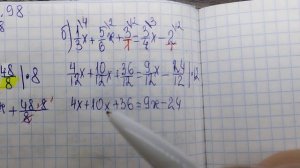 98
б) 1/3 x + 5/6 x + 3/1 = 3/4 x - 2/1
48/8 | ·8
4/12 x + 10/12 x + 36/12 = 9/12 x - 24/12 | ·12
+ 48·8/8
4x + 10x + 36 = 9x - 24